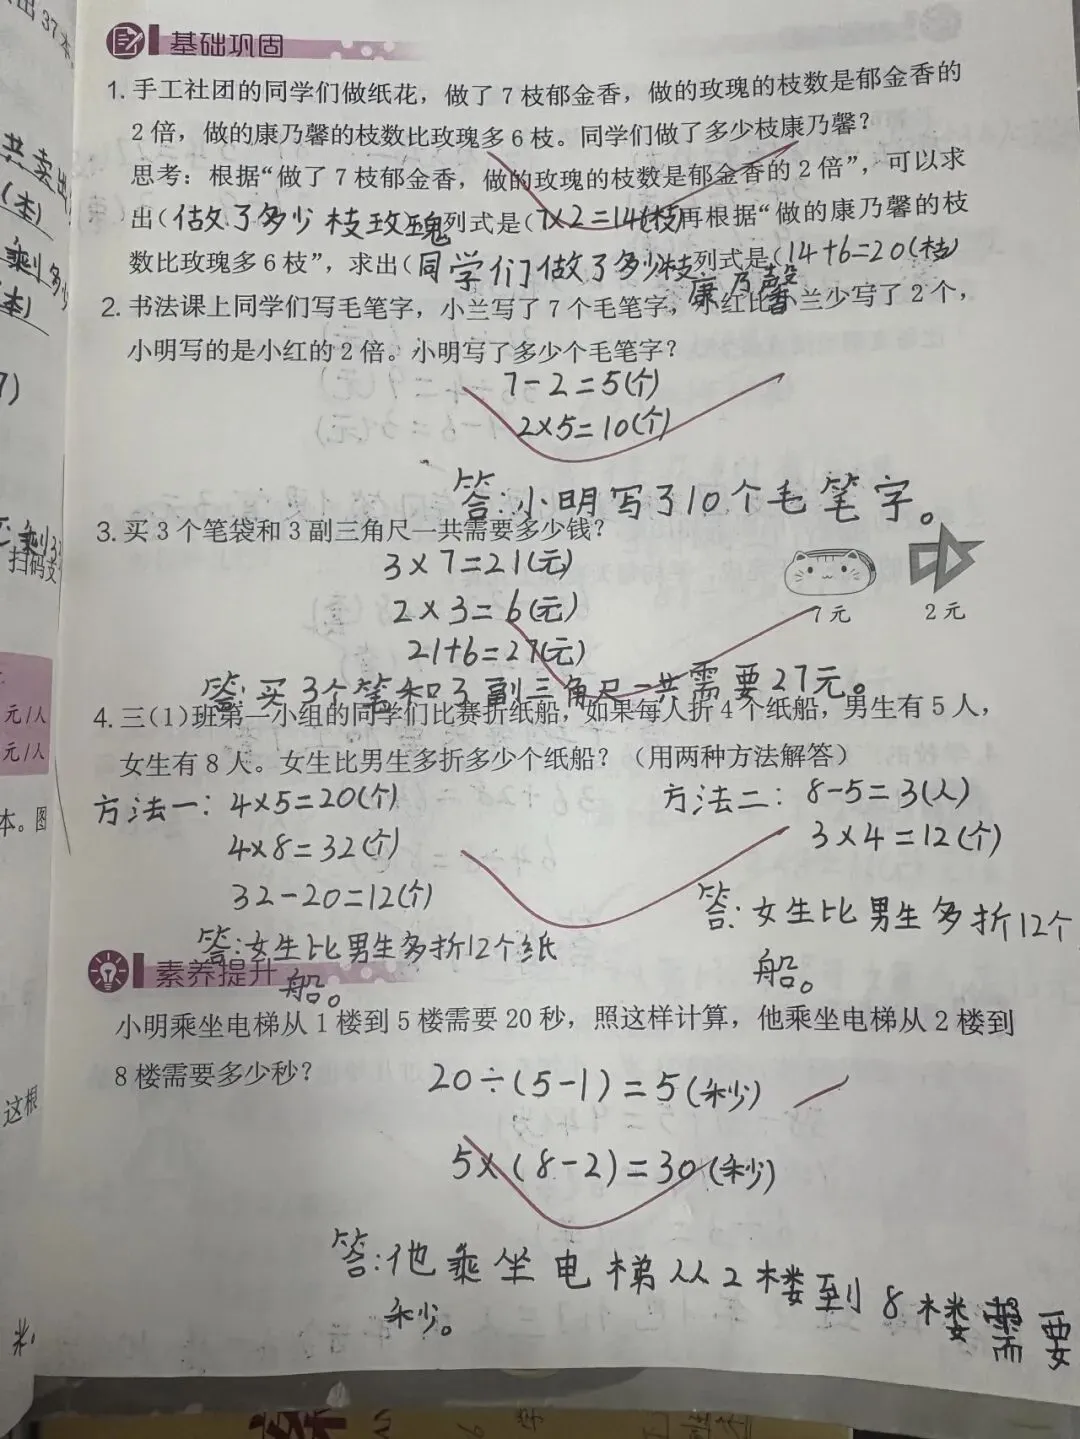 出37本
共卖出
(本)
剩多少
本)
7)
剩3
扫码支
元/人
元/人
本。图
这根
基础巩固
1. 手工社团的同学们做纸花，做了7枝郁金香，做的玫瑰的枝数是郁金香的
2倍，做的康乃馨的枝数比玫瑰多6枝。同学们做了多少枝康乃馨？
思考：根据“做了7枝郁金香，做的玫瑰的枝数是郁金香的2倍”，可以求
出(做了多少枝玫瑰列式是(7×2=14(枝)再根据“做的康乃馨的枝
数比玫瑰多6枝”，求出(同学们做了多少枝列式是(14+6=20(枝)
康乃馨
2. 书法课上同学们写毛笔字，小兰写了7个毛笔字，小红比小兰少写了2个，
小明写的是小红的2倍。小明写了多少个毛笔字？
7-2=5(个)
2×5=10(个)
答:小明写了10个毛笔字。
3. 买3个笔袋和3副三角尺一共需要多少钱？
3×7=21(元)
2×3=6(元)
7元
2元
21+6=27(元)
答:买3个笔和3副三角尺一共需要27元。
4. 三(1)班第一小组的同学们比赛折纸船，如果每人折4个纸船，男生有5人，
女生有8人。女生比男生多折多少个纸船？（用两种方法解答）
方法一：4×5=20(个)
4×8=32(个)
32-20=12(个)
答:女生比男生多折12个纸
船。
方法二：8-5=3(人)
3×4=12(个)
答:女生比男生多折12个
船。
素养提升
小明乘坐电梯从1楼到5楼需要20秒，照这样计算，他乘坐电梯从2楼到
8楼需要多少秒？
20÷(5-1)=5(秒)
5×(8-2)=30(秒)
答:他乘坐电梯从2楼到8楼需要
秒。